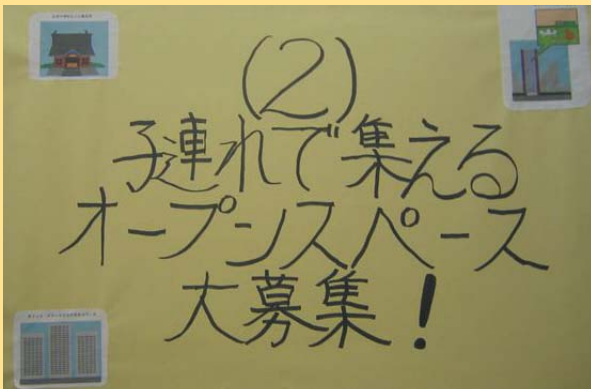 (2)
子連れで集える
オープンスペース
大募集!